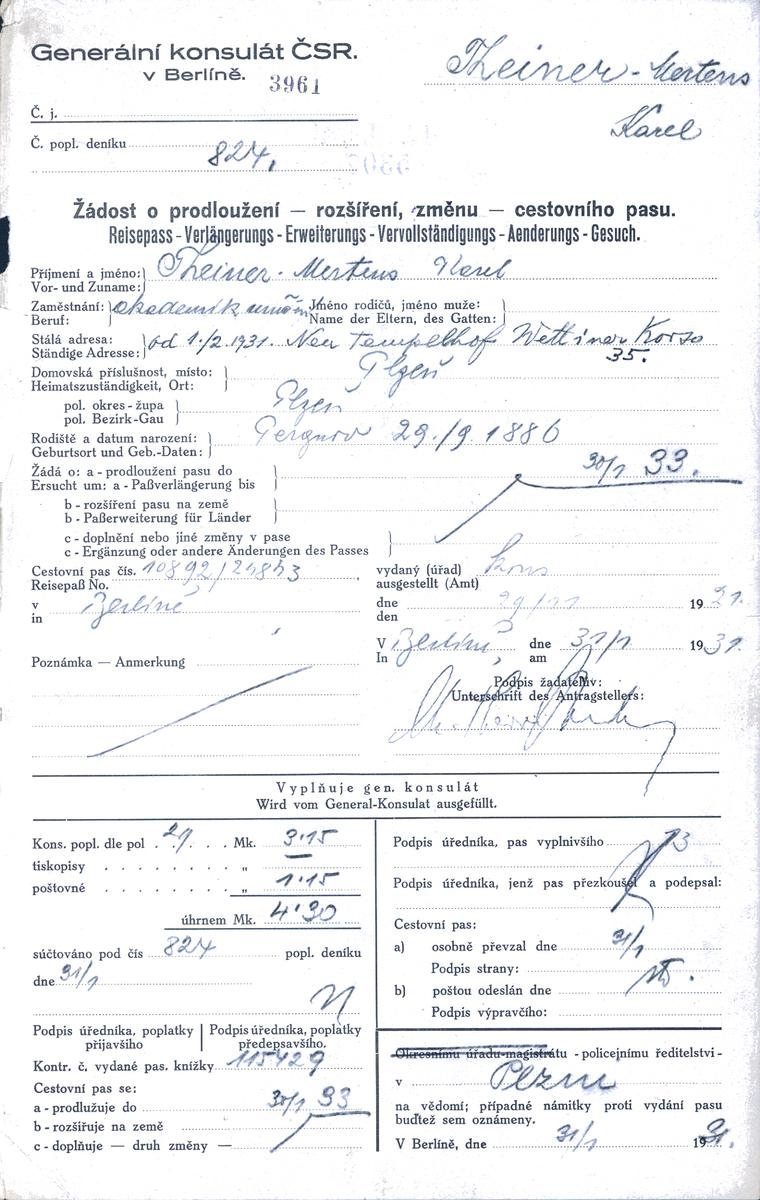 Generální konsulát ČSR.
v Berlíně.
3961
Theiner-Mertens
Karel
Č. j.
Č. popl. deníku
824.
Žádost o prodloužení — rozšíření, změnu — cestovního pasu.
Reisepass - Verlängerungs - Erweiterungs - Vervollständigungs - Aenderungs - Gesuch.
Příjmení a jméno: Theiner-Mertens Karel
Vor- und Zuname:
Zaměstnání: akademik Jméno rodičů, jméno muže:
Beruf: Name der Eltern, des Gatten:
Stálá adresa: od 1./2. 1931. Neu Tempelhof Wettiner Korso
Ständige Adresse: 35.
Domovská příslušnost, místo: Plzeň
Heimatszuständigkeit, Ort:
pol. okres - župa Plzeň
pol. Bezirk - Gau
Rodiště a datum narození: 29./9. 1886
Geburtsort und Geb.-Daten:
Žádá o: a - prodloužení pasu do 30/1 33.
Ersucht um: a - Paßverlängerung bis
b - rozšíření pasu na země
b - Paßerweiterung für Länder
c - doplnění nebo jiné změny v pase
c - Ergänzung oder andere Änderungen des Passes
Cestovní pas čís. 10892/24843, vydaný (úřad) kons
Reisepaß No. ausgestellt (Amt)
v Berlíně dne 29/11 1921.
in den
V Berlíně, dne 31/1 1931.
In am
Poznámka — Anmerkung
Podpis žadatelův:
Unterschrift des Antragstellers:
Vyplňuje gen. konsulát
Wird vom General-Konsulat ausgefüllt.
Kons. popl. dle pol . 29 . . . Mk. 3·15
tiskopisy . . . . . . . . „ —
poštovné . . . . . . . . „ 1·15
úhrnem Mk. 4·30
súčtováno pod čís 824 popl. deníku
dne 31/1
Podpis úředníka, poplatky přijavšího
Podpis úředníka, poplatky předepsavšího.
Kontr. č. vydané pas. knížky 115429
Cestovní pas se:
a - prodlužuje do 30/1 33
b - rozšiřuje na země
c - doplňuje — druh změny —
Podpis úředníka, pas vyplnivšího
Podpis úředníka, jenž pas přezkoušel a podepsal:
Cestovní pas:
a) osobně převzal dne 31/1
Podpis strany:
b) poštou odeslán dne
Podpis výpravčího:
Okresnímu úřadu-magistrátu - policejnímu ředitelství -
v Plzni
na vědomí; případné námitky proti vydání pasu
buďtež sem oznámeny.
V Berlíně, dne 31/1 1931.